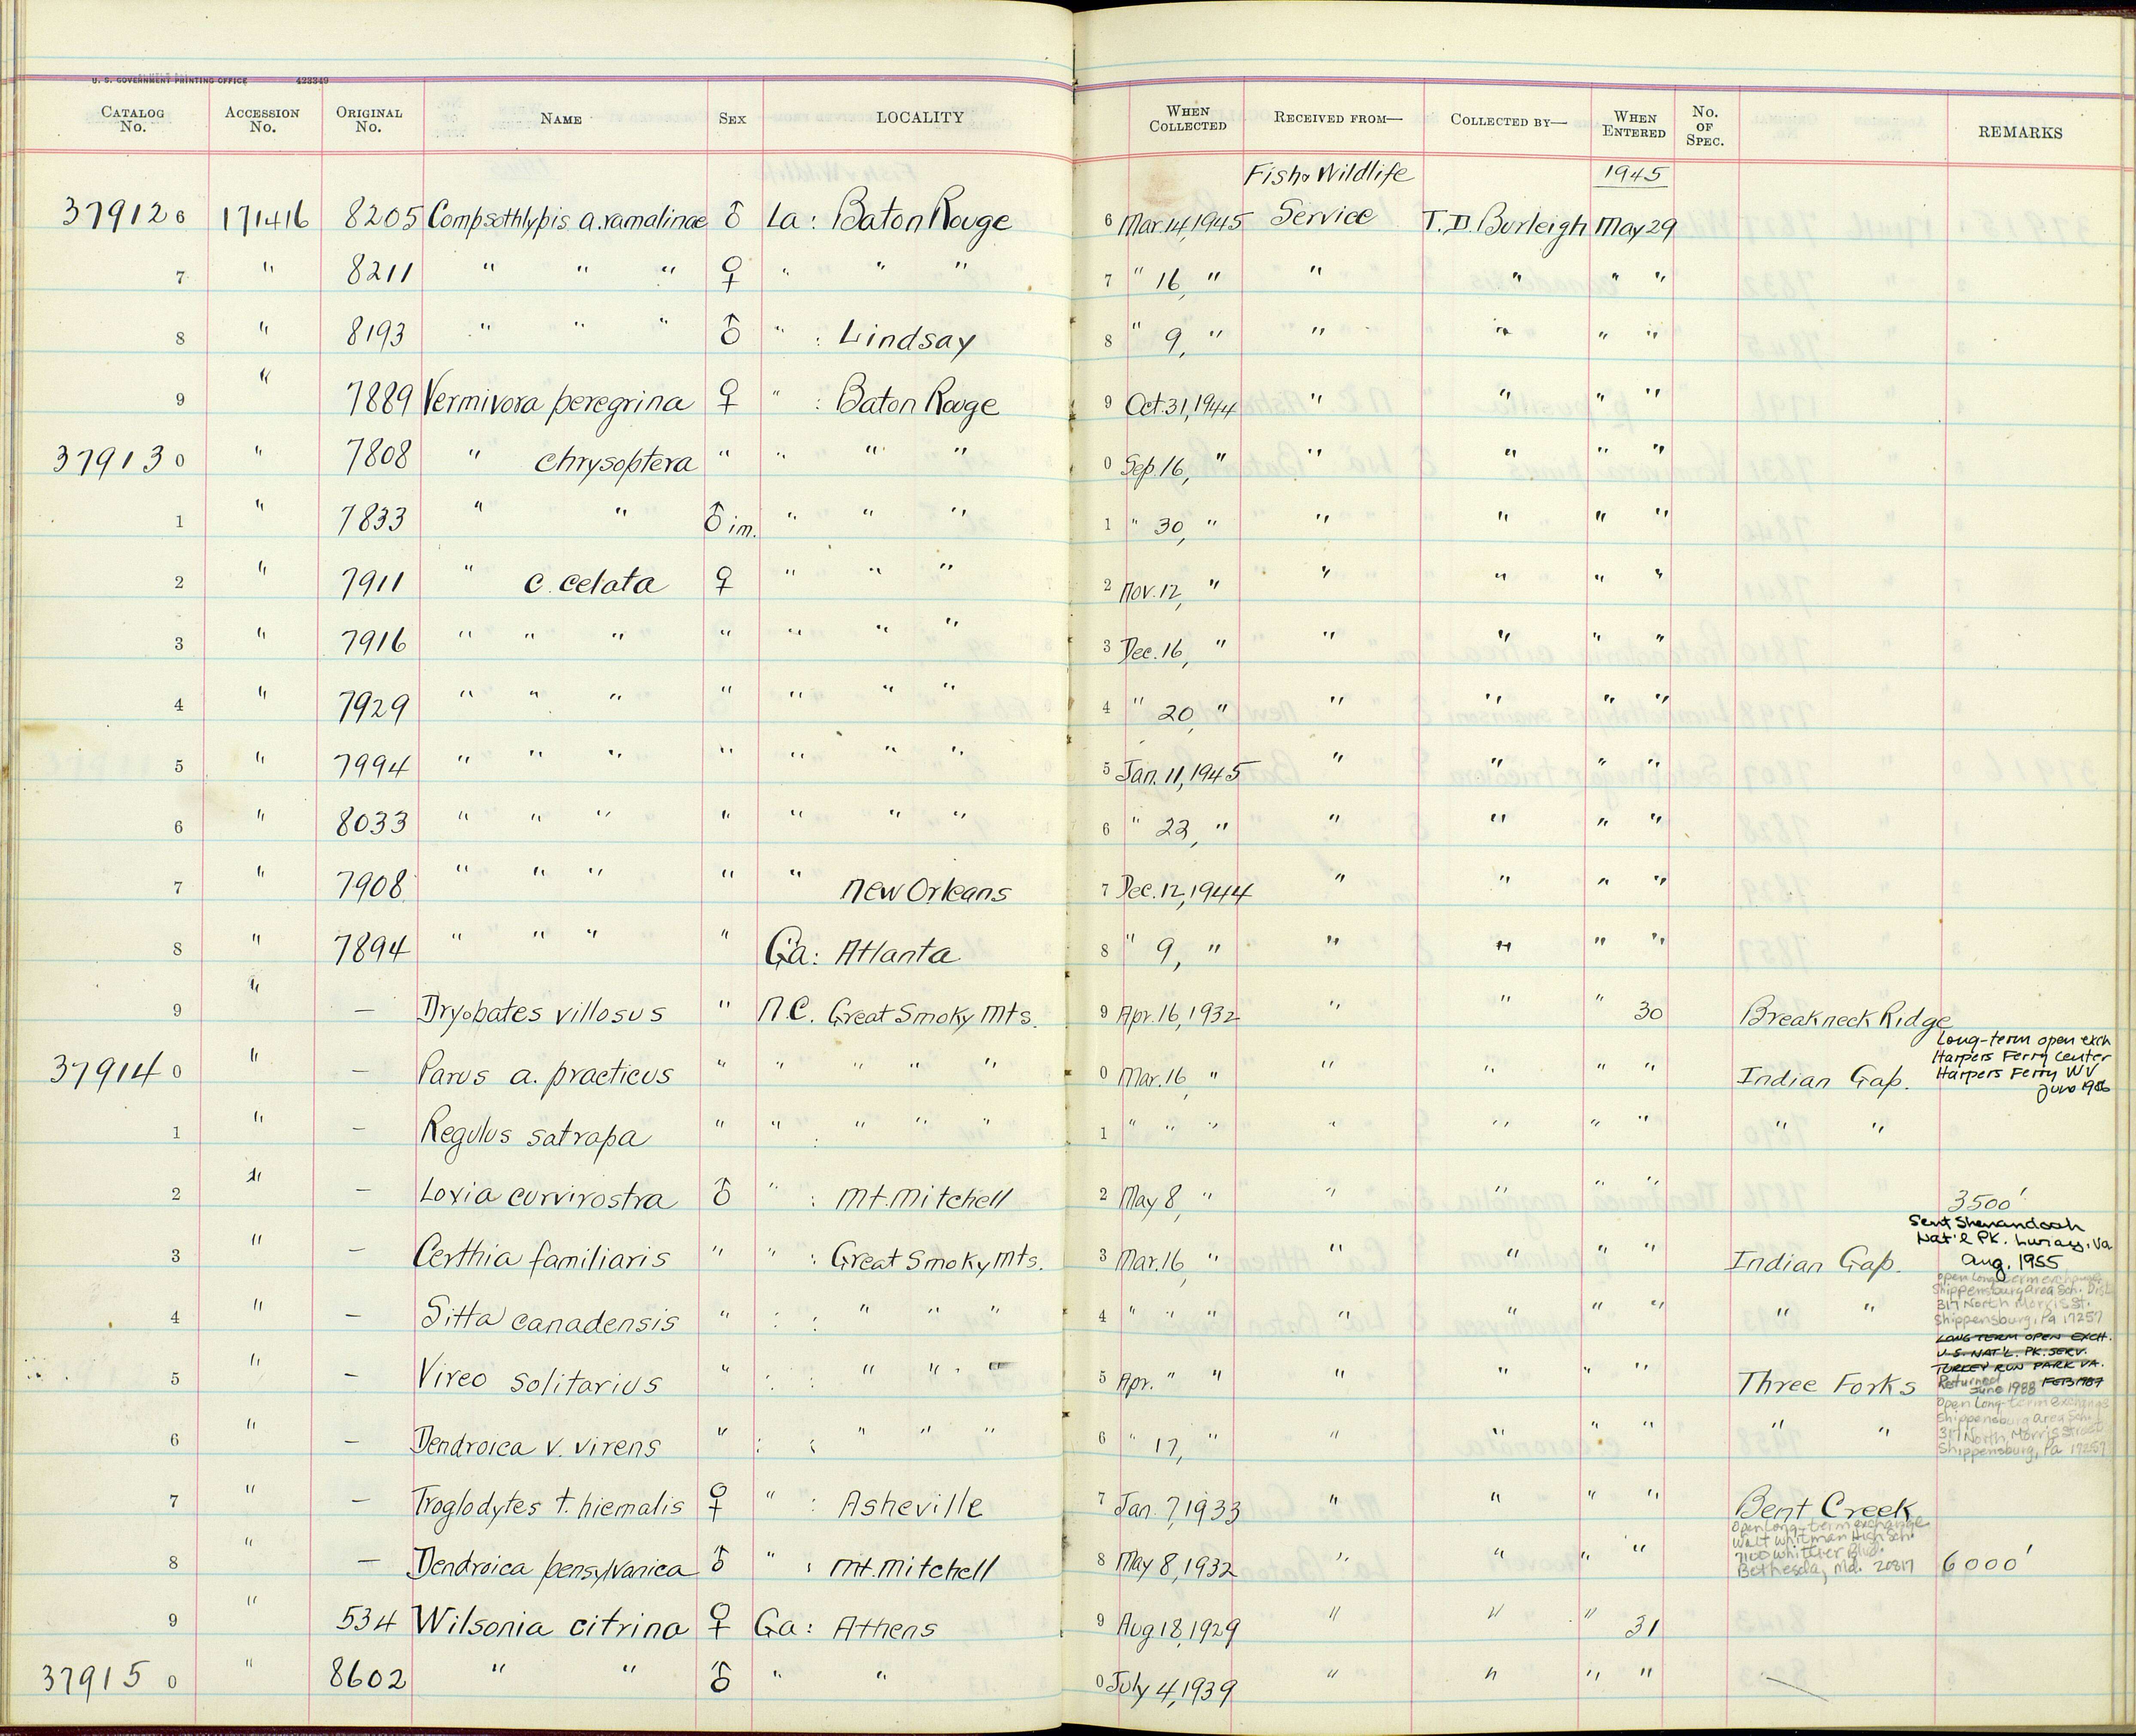 U. S. GOVERNMENT PRINTING OFFICE 423349
CATALOG No. ACCESSION No. ORIGINAL No. NAME SEX LOCALITY WHEN COLLECTED RECEIVED FROM— COLLECTED BY— WHEN ENTERED No. OF SPEC. REMARKS
Fish & Wildlife 1945
379126 171416 8205 Compsothlypis a. ramalinae ♂ La: Baton Rouge 6 Mar. 14, 1945 Service T. D. Burleigh May 29
7 " 8211 " " " ♀ " " " 7 " 16, " " " " "
8 " 8193 " " " ♂ " : Lindsay 8 " 9, " " " " "
9 " 7889 Vermivora peregrina ♀ " : Baton Rouge 9 Oct. 31, 1944 " " " "
379130 " 7808 " chrysoptera " " " " 0 Sep. 16, " " " " "
1 " 7833 " " ♂ im. " " " 1 " 30, " " " " "
2 " 7911 " c. celata ♀ " " " 2 Nov. 12, " " " " "
3 " 7916 " " " " " " " 3 Dec. 16, " " " " "
4 " 7929 " " " " " " " 4 " 20, " " " " "
5 " 7994 " " " " " " " 5 Jan. 11, 1945 " " " "
6 " 8033 " " " " " " " 6 " 23, " " " " "
7 " 7908 " " " " " New Orleans 7 Dec. 12, 1944 " " " "
8 " 7894 " " " " Ga: Atlanta 8 " 9, " " " " "
9 " — Dryobates villosus " N.C. Great Smoky Mts. 9 Apr. 16, 1932 " " " 30 Breakneck Ridge
Long-term open exch
Harpers Ferry Center
Harpers Ferry WV
June 1986
379140 " — Parus a. practicus " " " " " 0 Mar. 16, " " " " " Indian Gap.
1 " — Regulus satrapa " " " " " 1 " " " " " " " " "
2 " — Loxia curvirostra ♂ " : Mt. Mitchell 2 May 8, " " " " " 3500'
Sent Shenandoah
Nat'l PK. Luray, Va
Aug. 1955
3 " — Certhia familiaris " " : Great Smoky Mts. 3 Mar. 16, " " " " " Indian Gap.
Open long-term exchange
Shippensburg Area Sch. Dist.
317 North Morris St.
Shippensburg, Pa 17257
4 " — Sitta canadensis " : : " " " 4 " " " " " " " " "
LONG TERM OPEN EXCH.
U.S. NAT'L. PK. SERV.
TURKEY RUN PARK VA.
FEB 1987
Returned June 1988
5 " — Vireo solitarius " : : " " " 5 Apr. " " " " " " Three Forks
Open Long-term exchange
Shippensburg Area Sch.
317 North Morris Street
Shippensburg, Pa 17257
6 " — Dendroica v. virens " : : " " " 6 " 17, " " " " " " "
7 " — Troglodytes t. hiemalis ♀ " : Asheville 7 Jan. 7, 1933 " " " " Bent Creek
Open long-term exchange
Walt Whitman High Sch.
7100 Whittier Blvd.
Bethesda, Md. 20817
8 " — Dendroica pensylvanica ♂ " : Mt. Mitchell 8 May 8, 1932 " " " " 6000'
9 " 534 Wilsonia citrina ♀ Ga: Athens 9 Aug 18, 1929 " " " 31
379150 " 8602 " " ♂ " " 0 July 4, 1939 " " " "